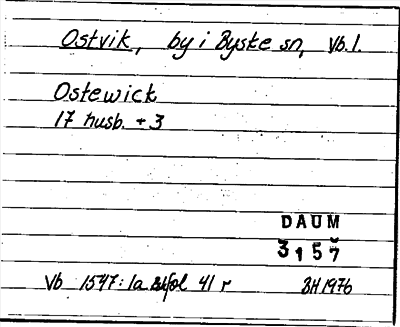 Ostvik, by i Byske sn, Vb. l.
Ostewick
17 husb. + 3
DAUM
3157
Vb 1547: 1a fol 41 r BH 1976